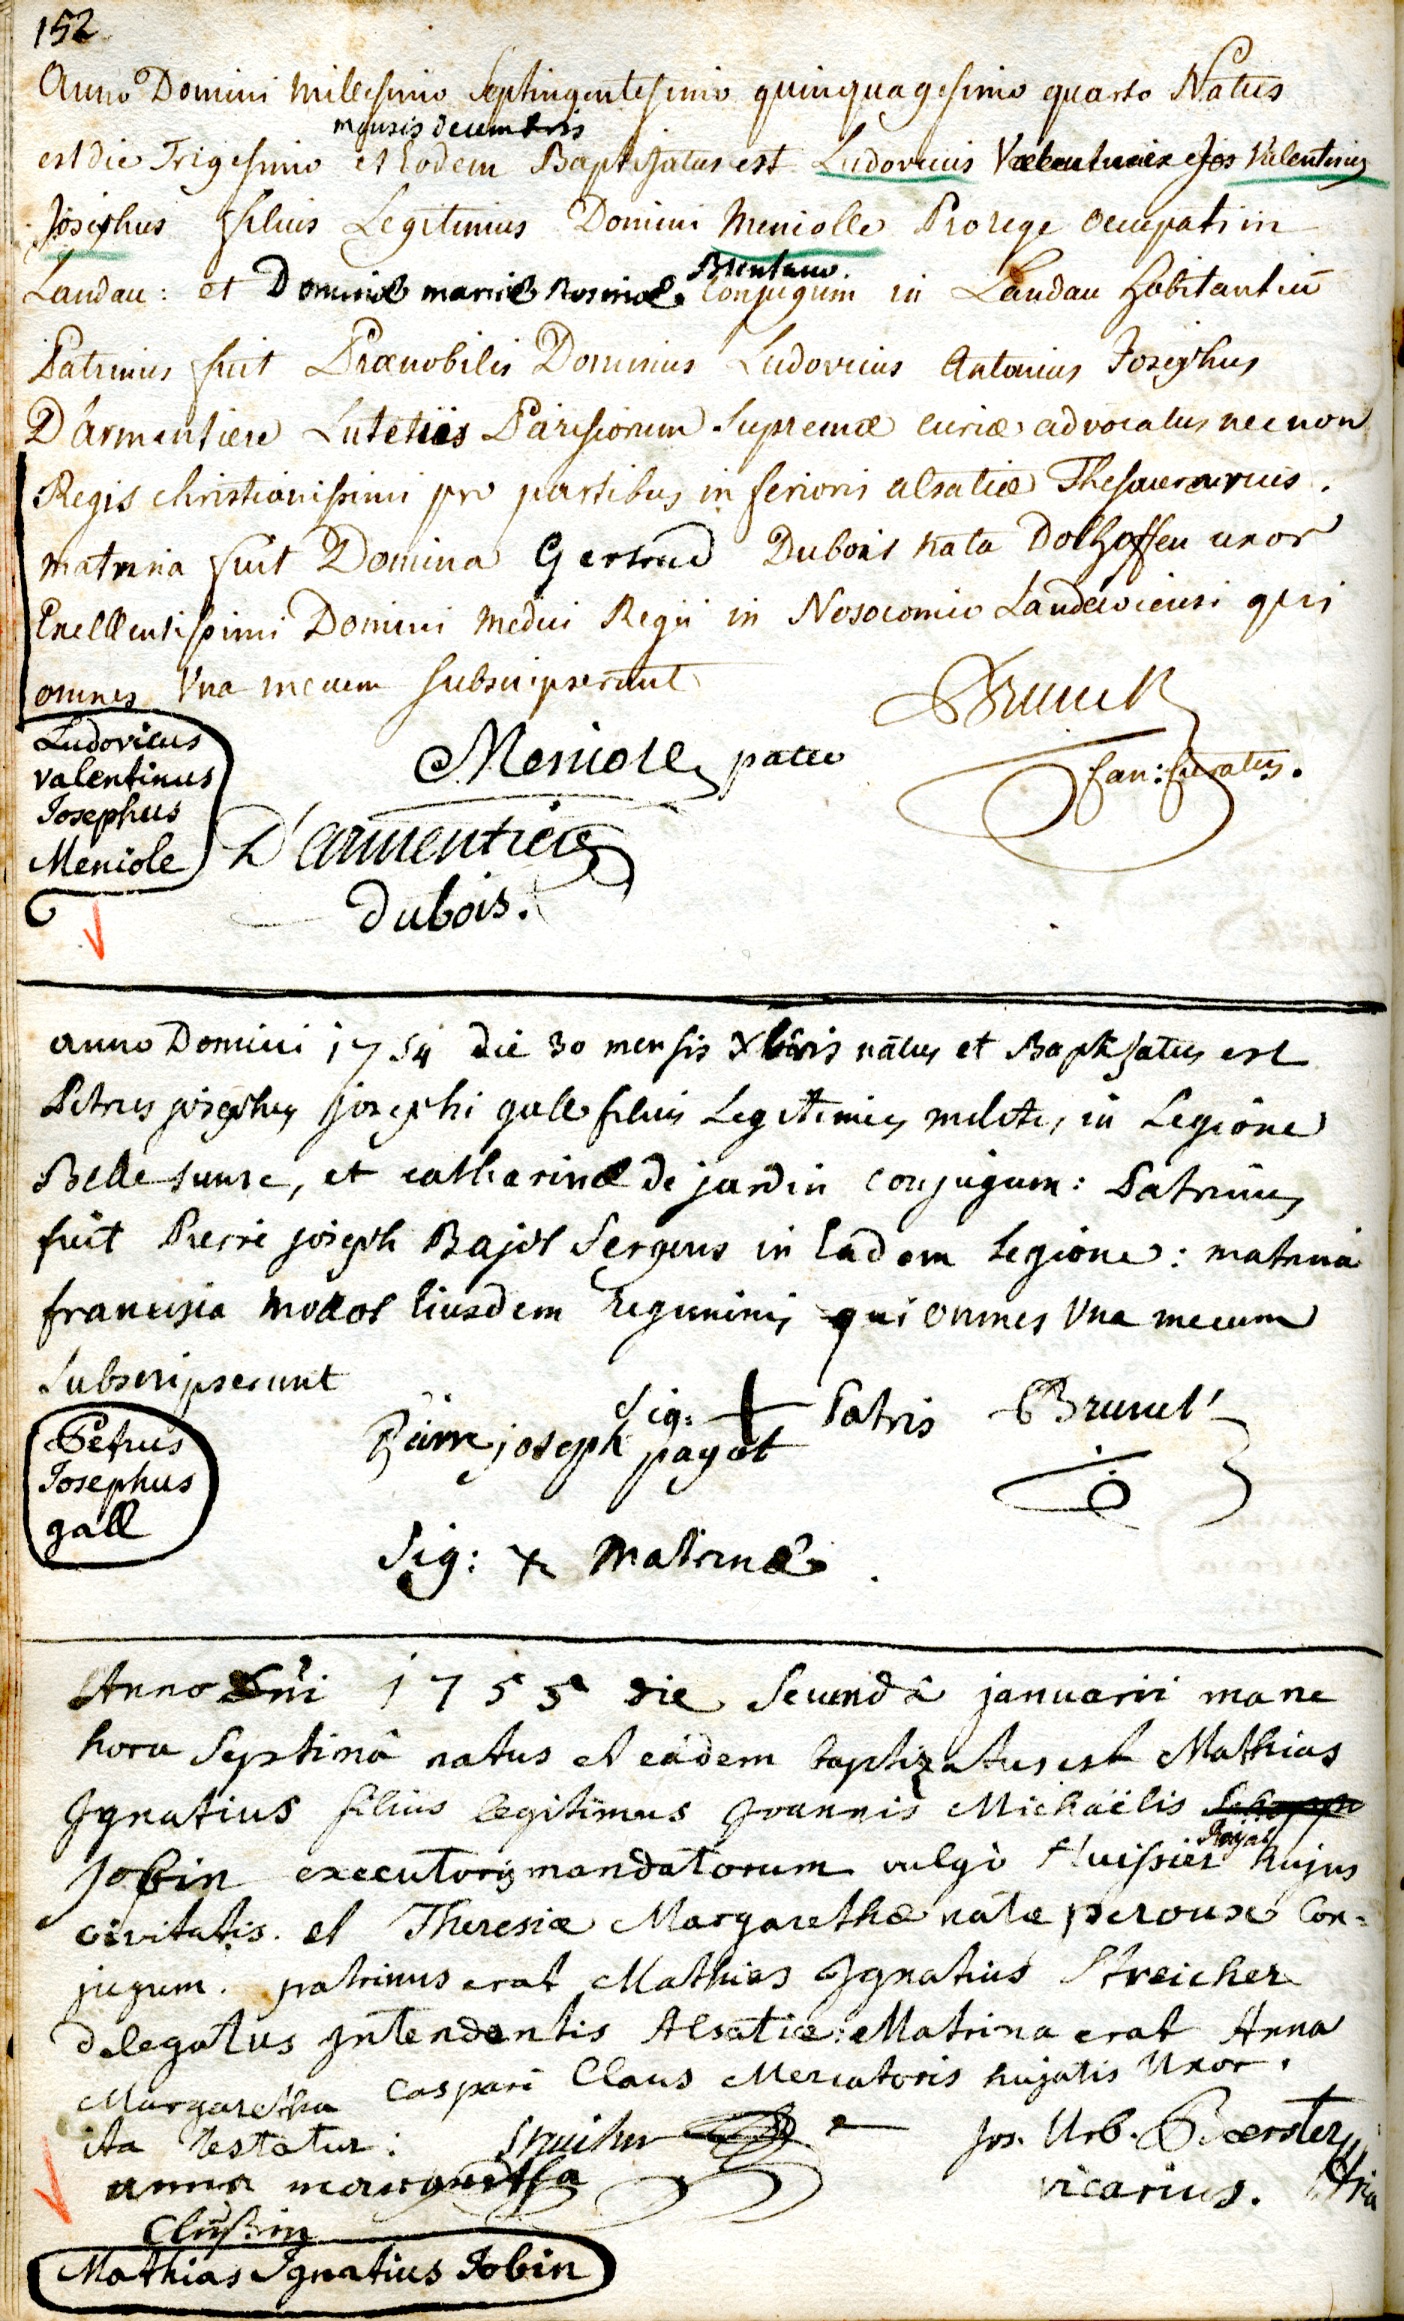 152
Anno Domini Millesimo Septingentesimo quinquagesimo quarto Natus
mensis decembris
est die Trigesimo et Eodem Baptisatus est Ludovicus Jos Valentinus
Josephus filius Legitimus Domini Meniolle Prorege occupati in
Brentano.
Landau: et Dominæ mariæ Rosinæ. Conjugum in Landau habitantiū
Patrinus fuit Prænobilis Dominus Ludovicus Antonius Josephus
D'armentiere Lutetiæs Parisiorum Supremæ curiæ advocatus necnon
Regis christianissimi pro partibus inferioris alsatiæ Thesaurarius.
matrina fuit Domina Gertrud Dubois nata Dolhoffen uxor
Exellentissimi Domini Medici Regii in Nosocomio Landaviensi qui
omnes Una mecum subscripserunt
Brunck
can: curatus.
Meniole pater
Ludovicus
valentinus
Josephus
Meniole
D'armentiere
dubois.
anno Domini 1754 die 30 mensis Xbris natus et Baptisatus est
Petrus josephus josephi gall filius Legitimus militis in Legione
Bellesunse, et catharinæ de jardin conjugum: Patrinus
fuit Pierre joseph Bajot Sergens in Eadem Legione: matrina
francisca Eiusdem regiminis qui omnes Una mecum
subscripserunt
Sig: + Patris Brunck
joseph payot
Petrus
Josephus
gall
Sig: x Matrinæ.
Anno Dni 1755 die Secundâ januarii mane
hora Septimâ natus et eâdem baptizatus est Mathias
Ignatius filius legitimus Joannis Michaëlis Schopp
Royal
Jobin executoris mandatorum vulgò Huissier hujus
civitatis. et Theresiæ Margarethæ natæ peroux Con=
jugum. patrinus erat Mathias Ignatius Streicher
delegatus Intendentis Alsatiæ: Matrina erat Anna
Margaretha Caspari Claus Mercatoris hujatis Uxor.
ita testatur: Streicher Jos. Urb. Boerster
anna margretha vicarius.
Clausin
Mathias Ignatius Jobin